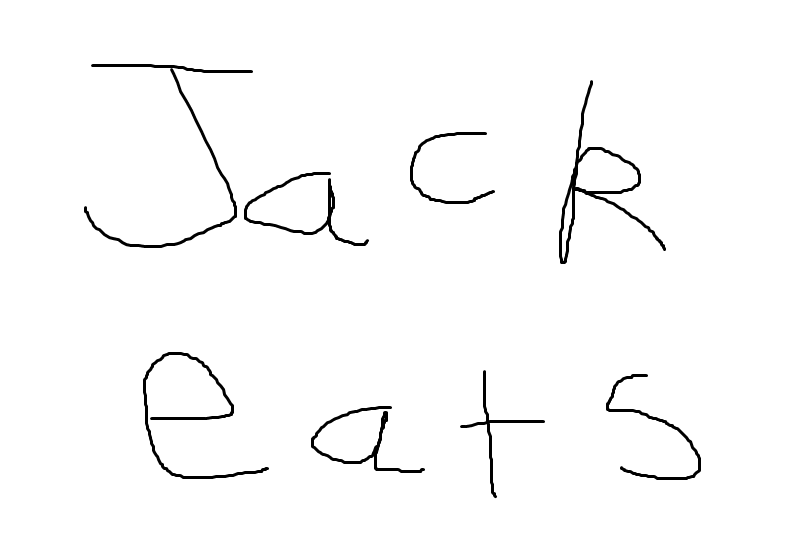 Jack
eats